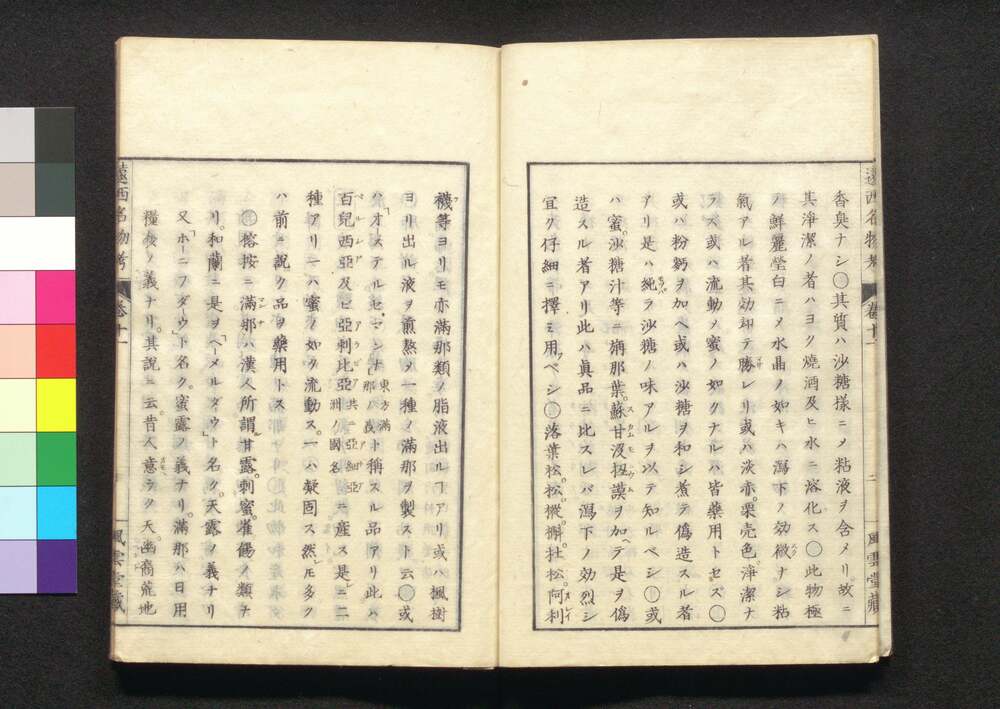 香臭ナシ〇其質ハ沙糖樣ニメ粘液ヲ含メリ故ニ
其淨潔ノ者ハヨク燒酒及ヒ水ニ溶化ス〇此物極
メ鮮麗瑩白ニメ水晶ノ如キハ瀉下ノ効微ナシ粘
氣アル者其効却テ勝レリ或ハ淡赤。栗売色。淨潔ナ
ラス或ハ流動メ蜜ノ如クナルハ皆藥用トセズ〇
或ハ粉麪ヲ加ヘ或ハ沙糖ヲ和シ煮テ僞造スル者
アリ是ハ純ラ沙糖ノ味アルヲ以テ知ルベシ〇或
ハ蜜。沙糖汁等ニ旃那葉。蘇甘没扭謨ヲ加ヘテ是ヲ僞
造スル者アリ此ハ眞品ニ比スレバ瀉下ノ効烈シ
宜ク仔細ニ擇ミ用フベシ〇落葉松。松。樅。槲。杜松。阿利
襪等ヨリモ亦滿那類ノ脂液出ルヿアリ或ハ楓樹
ヨリ出ル液ヲ煎熬メ一種ノ滿那ヲ製スト云〇或
ハ「オヲステルセ、マンナ」東方滿那ノ義ト稱スル品アリ此ハ
百兒西亞及ヒ亞剌比亞共ニ亞細亞洲ノ國名ニ産ス是ニ二
種アリ一ハ蜜ノ如ク流動ス。一ハ凝固ス然レ𪜈多ク
ハ前ニ説ク品ヲ藥用トス
〇榕按ニ滿那ハ漢人所謂甘露。刺蜜。雀餳ノ類ナ
リ。和蘭ニ是ヲ「ヘーメルダウ」ト名ク。天露ノ義ナリ
又「ホーニフダーウ」ト名ク。蜜露ノ義ナリ。滿那ハ日用
糧食ノ義ナリ。其説ニ云。昔人意ラク天。幽裔荒地
遠西名物考 卷十一
風雲堂藏